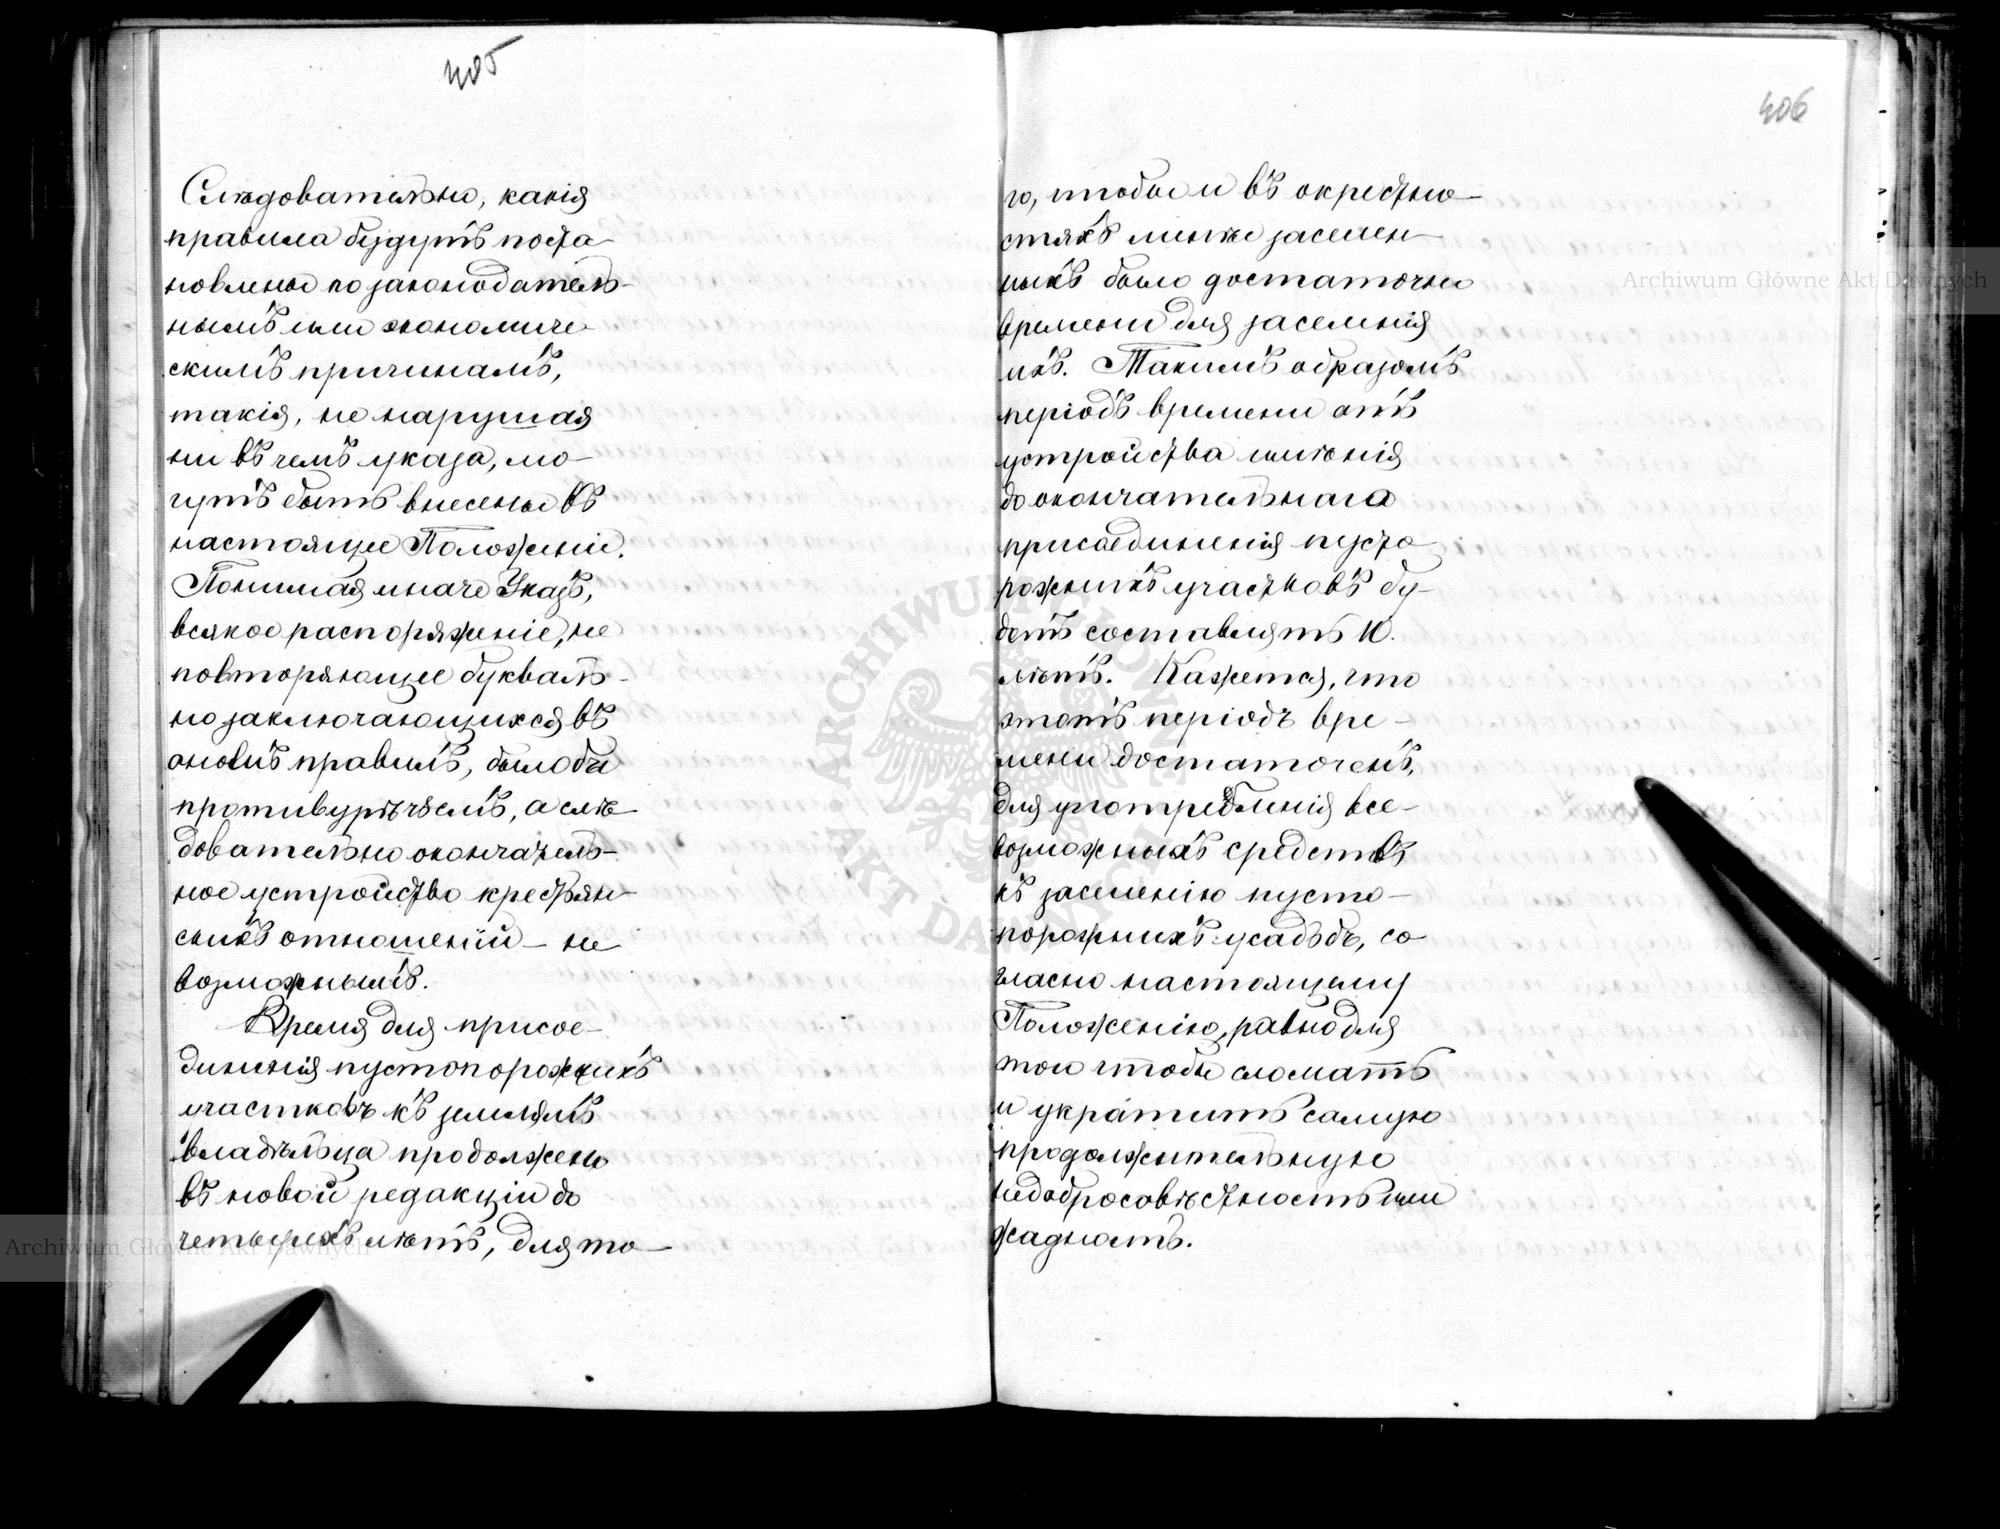 405
Слѣдовательно, какія
правила будутъ поста-
новлены по законодатель-
нымъ или экономиче-
скимъ причинамъ,
такія, не нарушая
ни въ чемъ указа, мо-
гутъ быть внесены въ
настоящее Положеніе.
Понимая иначе Указъ,
всякое распоряженіе, не
повторяющее букваль-
но заключающихся въ
ономъ правилъ, было бы
противурѣчіемъ, а слѣ-
довательно окончатель-
ное устройство крестьян-
скихъ отношеній – не
возможнымъ.
Время для присое-
диненія пустопорожнихъ
участковъ къ землямъ
владѣльца продолжено
въ новой редакціи до
четырехъ лѣтъ, для то-
406
го, чтобы и въ окрестно-
стяхъ менѣе заселен-
ныхъ было достаточно
времени для заселенія
ихъ. Такимъ образомъ
періодъ времени отъ
устройства имѣнія
до окончательнаго
присоединенія пусто
рожнихъ участковъ бу-
детъ составлять 10.
лѣтъ. Кажется, что
этотъ періодъ вре-
мени достаточенъ,
для употребленія все-
возможныхъ средствъ
къ заселенію пусто-
порожнихъ усадьбъ, со-
гласно настоящему
Положенію, равно для
того чтобы сломать
и укратить самую
продолжительную
недобросовѣстность или
жадность.
Archiwum Główne Akt Dawnych
Archiwum Główne Akt Dawnych
ARCHIWUM GŁÓWNE AKT DAWNYCH